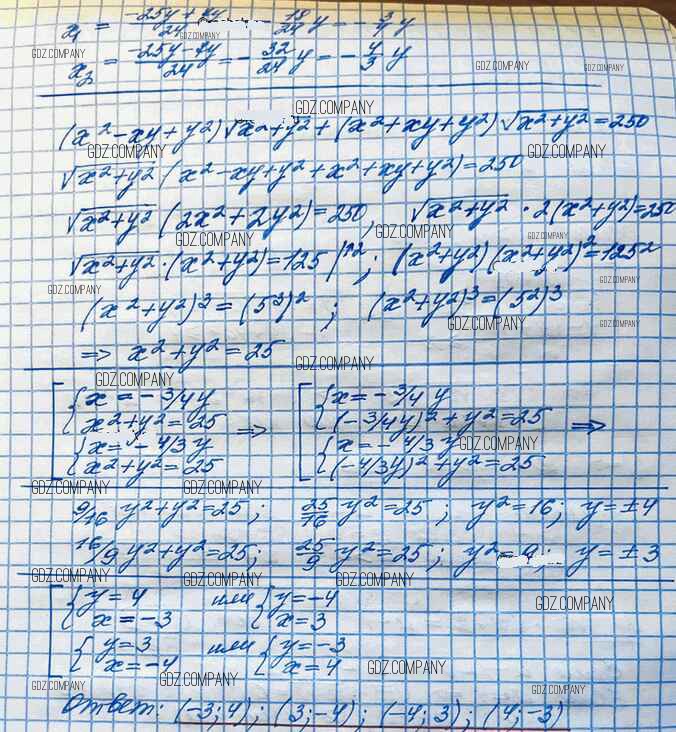 x₁ = (-25y + 7y)/24 = -18/24 y = -3/4 y
x₂ = (-25y - 7y)/24 = -32/24 y = -4/3 y
GDZ.COMPANY GDZ.COMPANY GDZ.COMPANY GDZ.COMPANY
GDZ.COMPANY
(x² - xy + y²) √x² + y² + (x² + xy + y²) √x² + y² = 250
GDZ.COMPANY GDZ.COMPANY
√x² + y² (x² - xy + y² + x² + xy + y²) = 250
√x² + y² (2x² + 2y²) = 250, √x² + y² · 2(x² + y²) = 250
GDZ.COMPANY GDZ.COMPANY
√x² + y² · (x² + y²) = 125 |↑2; (x² + y²)(x² + y²)² = 125²
GDZ.COMPANY GDZ.COMPANY
(x² + y²)³ = (5³)²; (x² + y²)³ = (5²)³
GDZ.COMPANY GDZ.COMPANY
=> x² + y² = 25
GDZ.COMPANY GDZ.COMPANY
[ { x = -3/4 y [ { x = -3/4 y
x² + y² = 25 => (-3/4 y)² + y² = 25 =>
{ x = -4/3 y { x = -4/3 y GDZ.COMPANY
x² + y² = 25 (-4/3 y)² + y² = 25
GDZ.COMPANY GDZ.COMPANY
9/16 y² + y² = 25; 25/16 y² = 25; y² = 16; y = ±4
16/9 y² + y² = 25; 25/9 y² = 25; y² = 9; y = ±3
GDZ.COMPANY GDZ.COMPANY GDZ.COMPANY
[ { y = 4 или { y = -4 GDZ.COMPANY
x = -3 x = 3
{ y = 3 или { y = -3
x = -4 x = 4 GDZ.COMPANY
GDZ.COMPANY GDZ.COMPANY GDZ.COMPANY
Ответ: (-3; 4); (3; -4); (-4; 3); (4; -3)